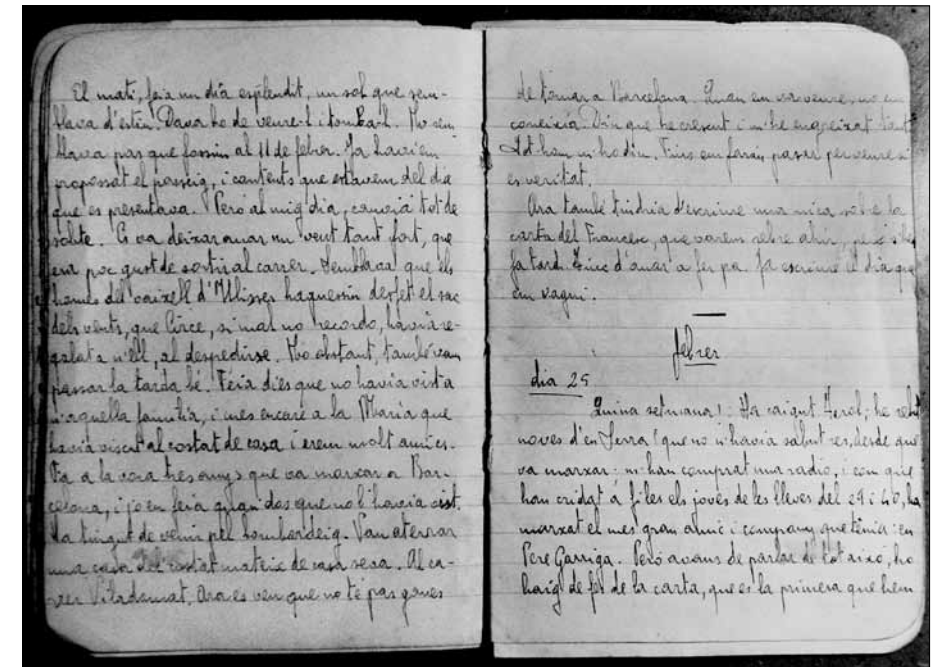 El matí, feia un dia esplendit, un sol que sem-
blava d'estiu. Dava bo de veure-l i tombar-l. No sem
blava pas que fossim al 11 de febrer. Ja haviem
propossat el passeig, i contents que estavem del dia
que es presentava. Pero al mig dia, canvià tot de
sobte. Es va deixar anar un vent tant fort, que
era poc gust de sortir al carrer. Semblaca que els
homes del vaixell d'Ulisses haguessin desfet el sac
dels vents, que Circe, si mal no recordo, havia re-
galat a n'ell, al despedirse. No obstant, també vam
passar la tarda bé. Feria dies que no havia vist a
n'aquella familia, i mes encare a la Maria que
havia viscut al costat de casa i erem molt amics.
Fa a la vora tres anys que va marxar a Bar-
celona, i jo en feia quasi dos que no l'havia vist.
Ha tingut de venir pel bombardeig. Van aterrar
una casa del costat mateix de casa seva. Al ca-
rrer Viladomat. Ara es veu que no té pas ganes
de tornar a Barcelona. Quan em va veure, no em
coneixia. Diu que he crescut i m'he engreixat tant
tothom m'ho diu. Fins em faran pasar per veure si
es veritat.
Ara també tindria d'escriure una mica sobre la
carta del Francesc, que varem rebre ahir, però s'ha
fa tard. Tinc d'anar a fer pa. Ja escriuré el dia que
em vagui.
febrer
dia 25
Quina setmana! Ha caigut Terol; he rebut
noves d'en Serra (que no n'havia sabut res, desde que
va marxar; m'han comprat una radio, i com que
han cridat á files els joves de les lleves del 29 i 40, ha
marxat el mes gran amic i company que tenia: en
Pere Garriga. Però avans de parlar de tot aixó, ho
haig de fer de la carta, que es la primera que hem